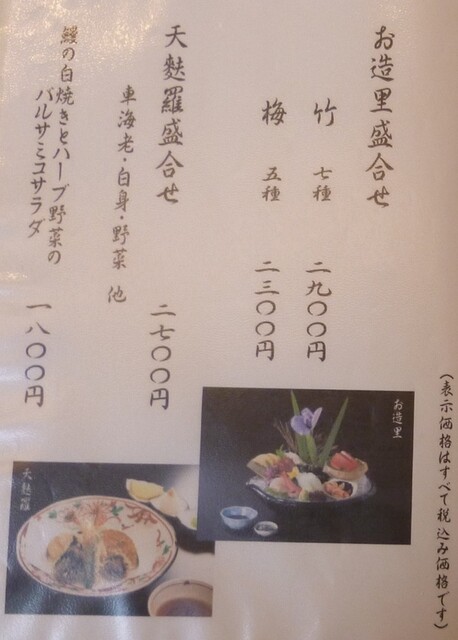 お造里盛合せ
竹　七種　二九〇〇円
梅　五種　二三〇〇円
天麩羅盛合せ
車海老・白身・野菜　他
二七〇〇円
鰻の白焼きとハーブ野菜の
バルサミコサラダ
一八〇〇円
（表示価格はすべて税込み価格です）
お造里
天麩羅